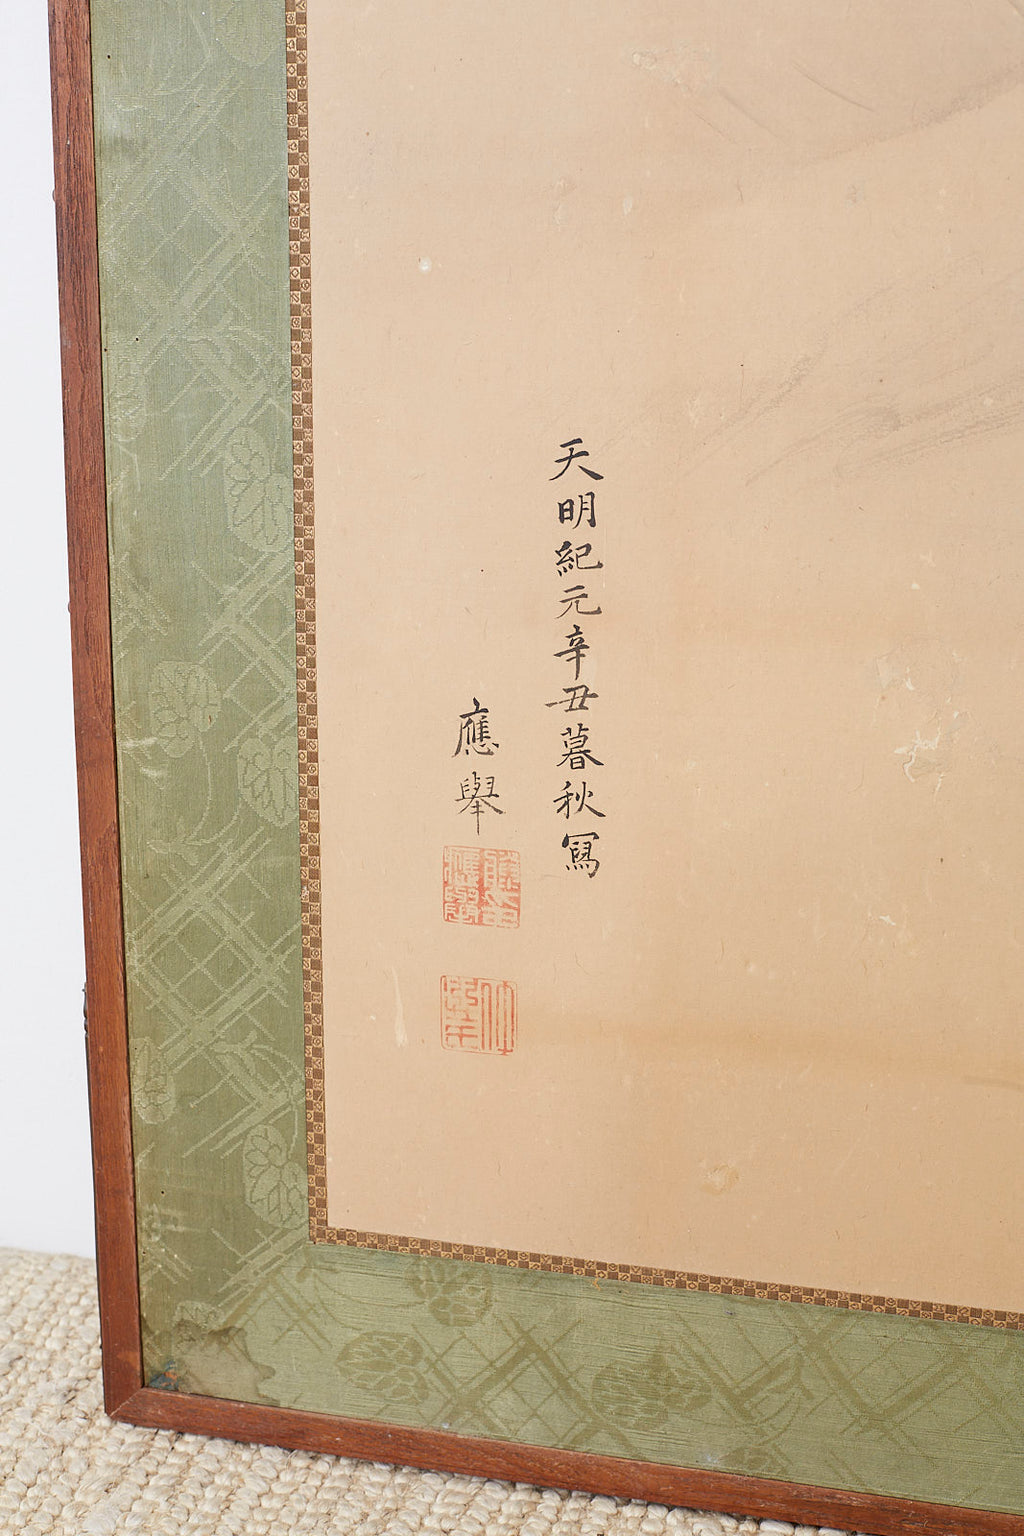 天明紀元辛丑暮秋冩
應舉